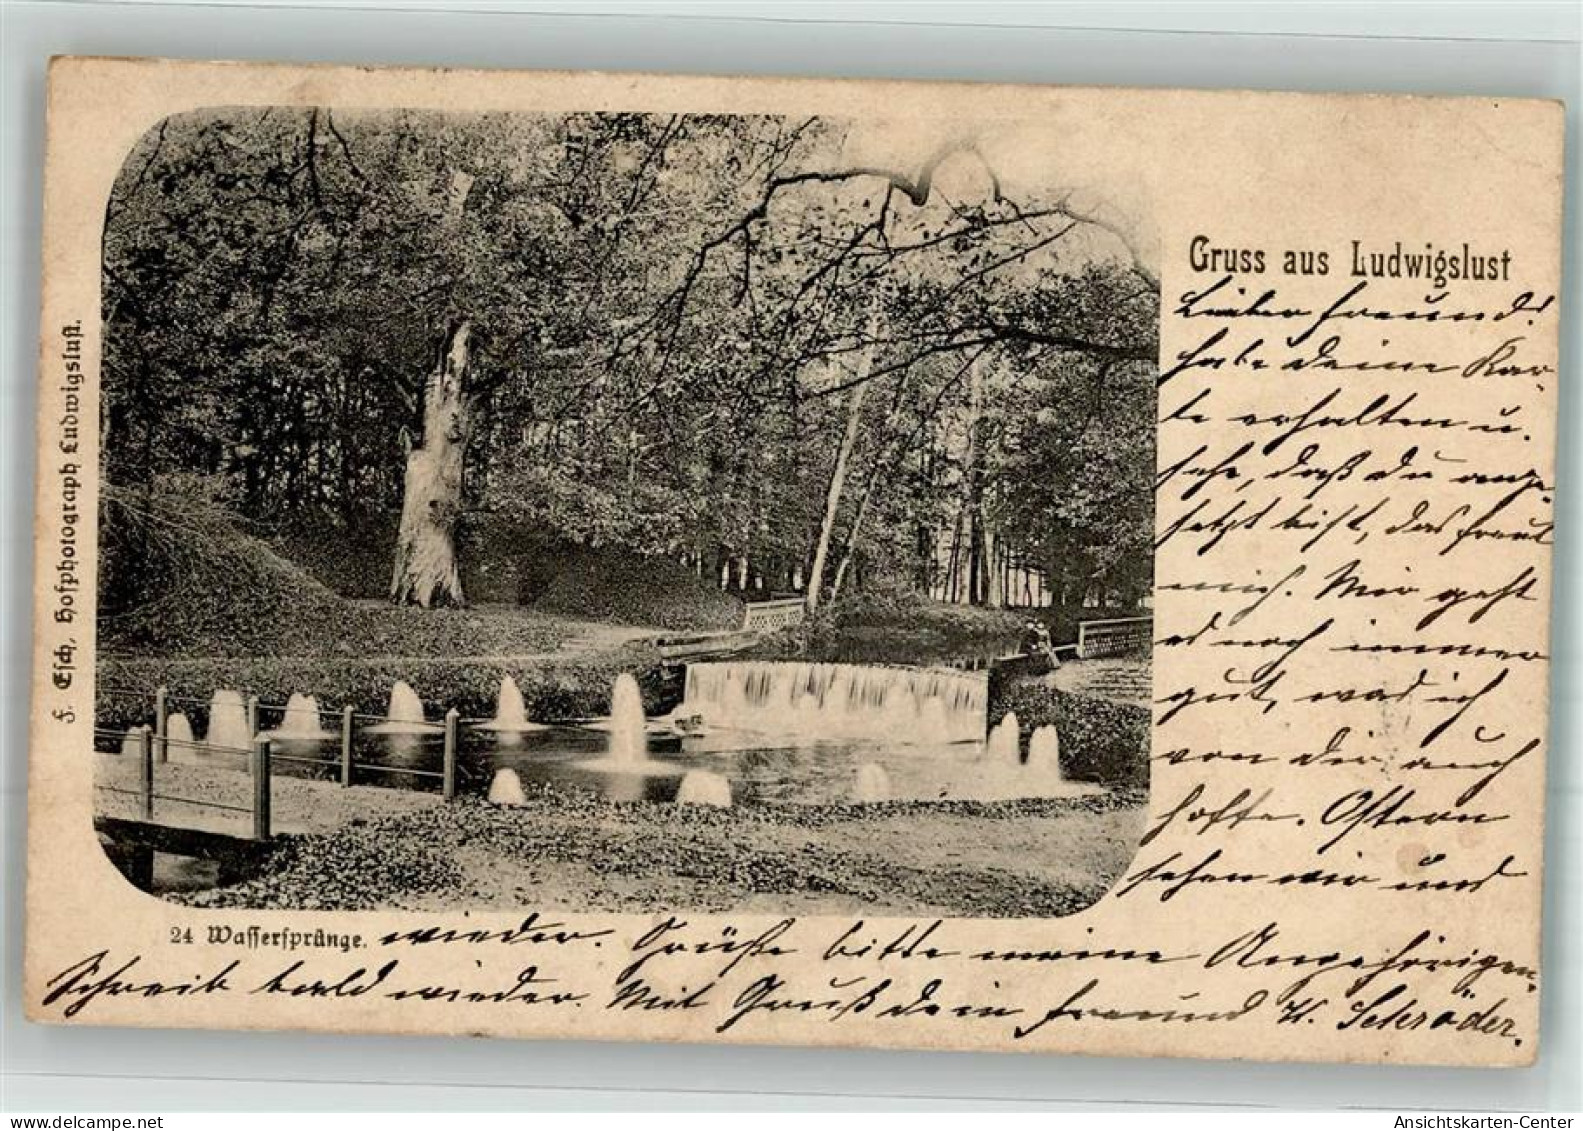 Gruss aus Ludwigslust
Lieber Freund!
habe deine Kar-
te erhalten u.
sehe, daß du ange-
setzt bist, das freut
mich. Mir geht
es noch immer
gut, was ich
von dir auch
hoffe. Ostern
sehen wir uns
24 Wassersprünge. wieder. Grüße bitte meine Angehörigen.
Schreib bald wieder. Mit Gruß dein Freund H. Schröder.
F. Esch, Hofphotograph Ludwigslust.
Ansichtskarten-Center